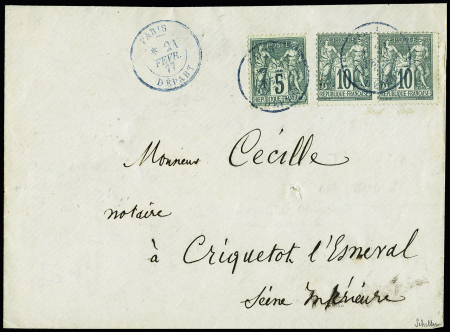 PARIS
* 21
FEVR.
77
DÉPART
POSTE
5
REPUBLIQUE FRANÇAISE
10
REPUBLIQUE FRANÇAISE
10
REPUBLIQUE FRANÇAISE
Monsieur Cécille
notaire
à Criquetot l'Esneval
Seine Inférieure